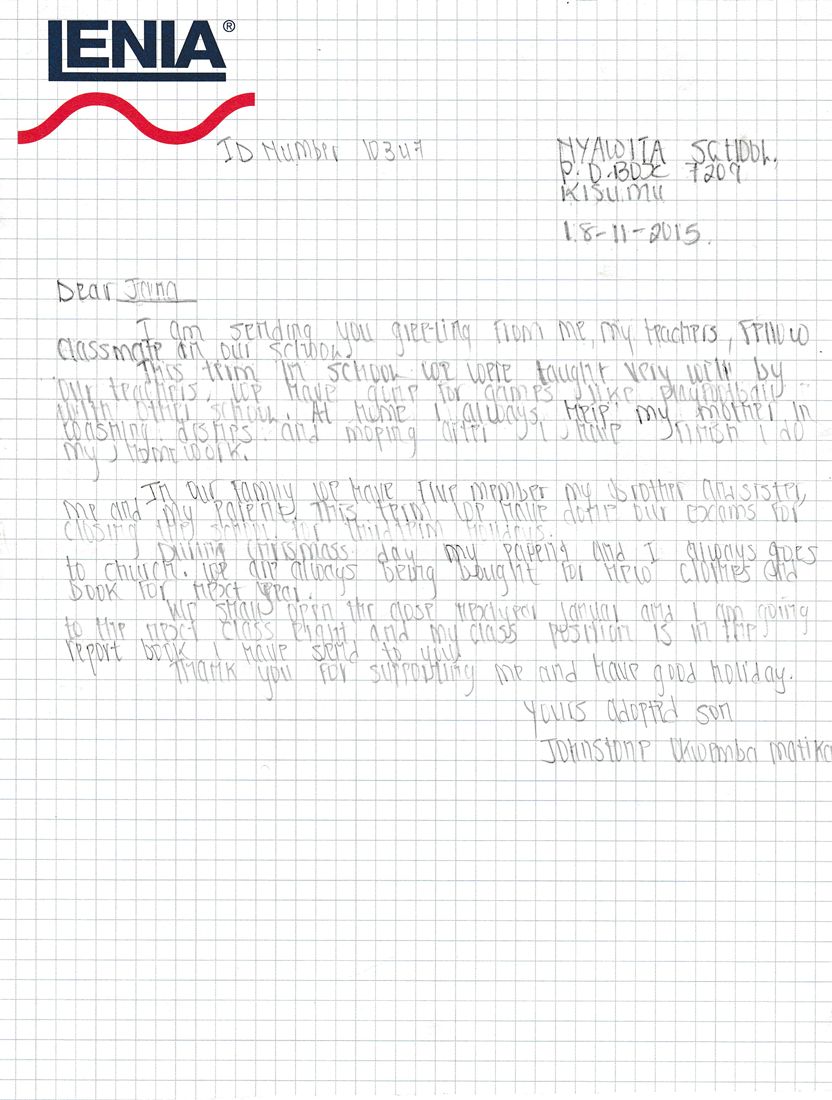 LENIA®
ID Number 10347
NYAWITA SCHOOL.
P.O.BOX 7209
KISUMU
18-11-2015.
Dear Jana
I am sending you greeting from me, my teachers, Fellow
classmate an our school.
This term in school we were taught very will by
our teachers, we have gone for games like playfootball
with other school. At home I always Help my mother in
washing dishes and moping after I have finish I do
my Homework.
In our Family we have Five member my brother and sister,
me and my Parent. This term we have done our exams for
closing the school for third term holidays.
During chrismass day my Parend and I always goes
to church. We are always being bought for New clothes and
book for Next year.
We shall open the next year and I am going
to the next class eight and my class position is in the
report book I have send to you.
Thank you for supporting me and have good holiday.
yours adopted son
JOHNSTONE matika